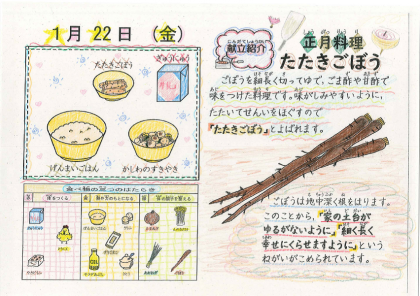 1月 22日 (金)
たたきごぼう
ぎゅうにゅう
げんまいごはん
かしわのすきやき
食べ物の三つのはたらき
献立紹介
正月料理
たたきごぼう
ごぼうを細長く切ってゆで、ごま酢や甘酢で
味をつけた料理です。味がしみやすいように、
たたいてせんいをほぐすので
「たたきごぼう」とよばれます。
ごぼうは地中深く根をはります。
このことから、「家の土台が
ゆるがないように」「細く長く
幸せにくらせますように」という
ねがいがこめられています。